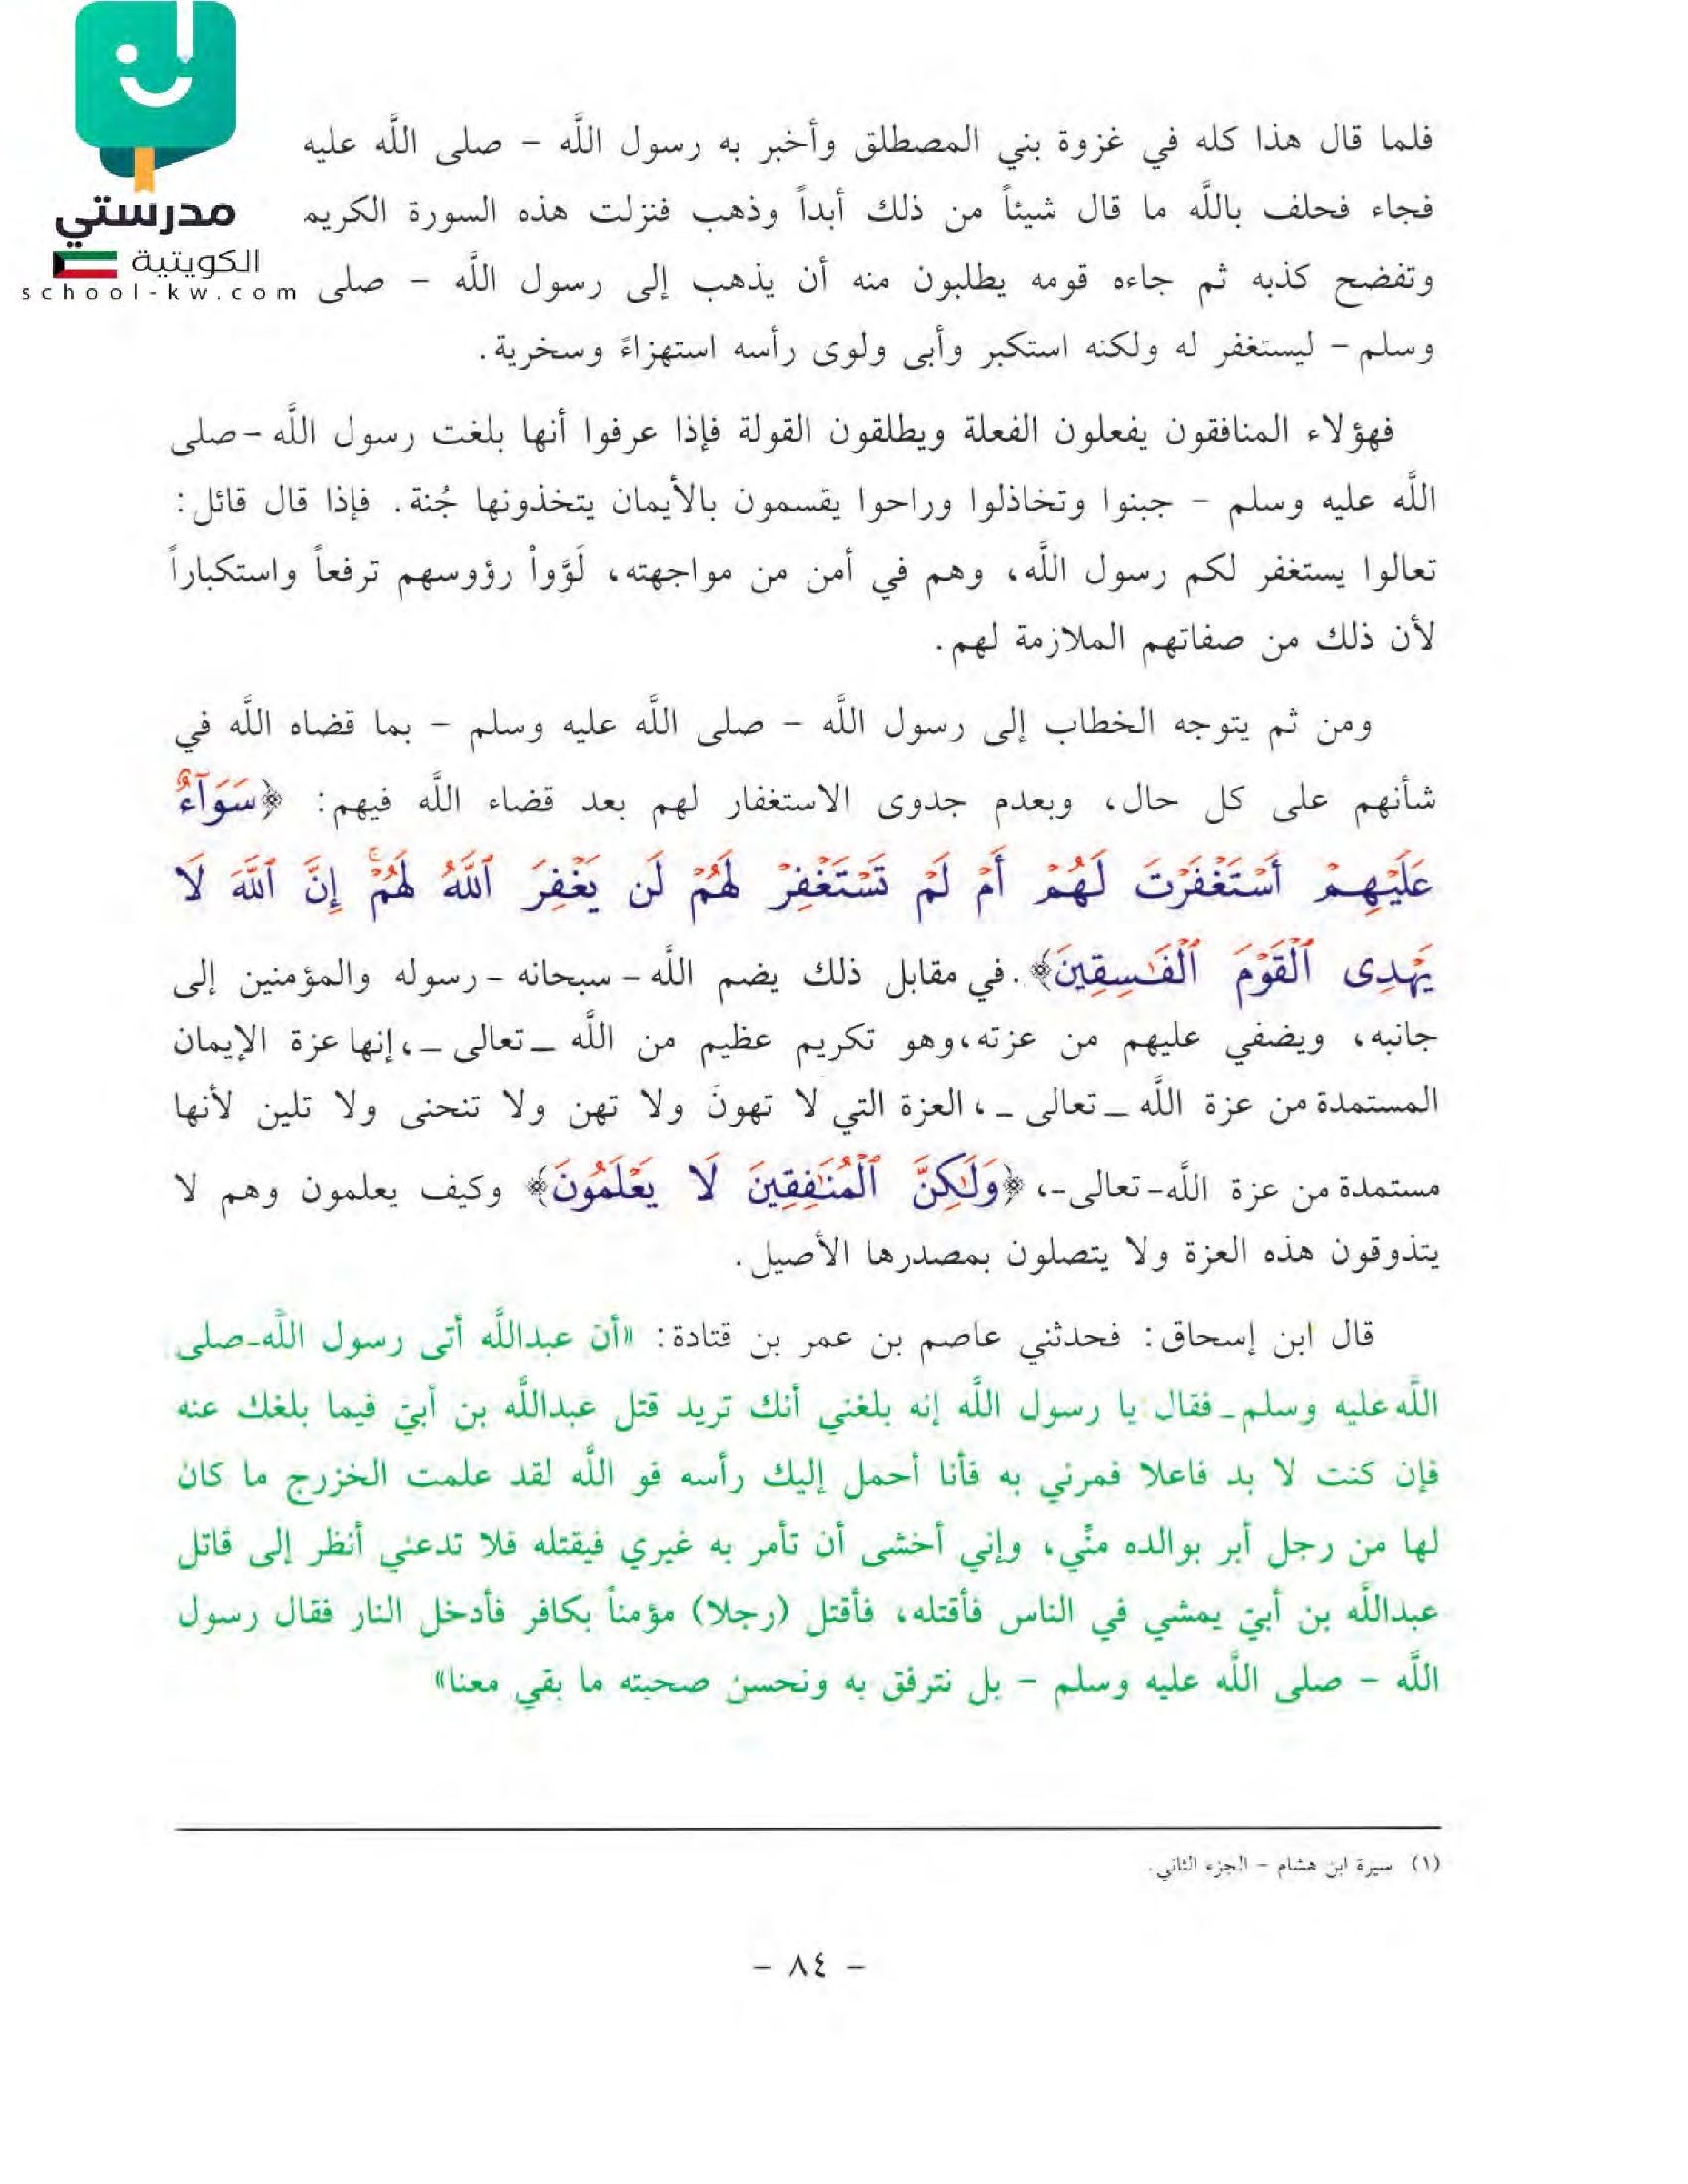 مدرستي
الكويتية
school-kw.com
فلما قال هذا كله في غزوة بني المصطلق وأخبر به رسول اللَّه - صلى اللَّه عليه
فجاء فحلف باللَّه ما قال شيئاً من ذلك أبداً وذهب فنزلت هذه السورة الكريم
وتفضح كذبه ثم جاءه قومه يطلبون منه أن يذهب إلى رسول اللَّه - صلى
وسلم - ليستغفر له ولكنه استكبر وأبى ولوى رأسه استهزاءً وسخرية.
فهؤلاء المنافقون يفعلون الفعلة ويطلقون القولة فإذا عرفوا أنها بلغت رسول اللَّه -صلى
اللَّه عليه وسلم - جبنوا وتخاذلوا وراحوا يقسمون بالأيمان يتخذونها جُنة. فإذا قال قائل:
تعالوا يستغفر لكم رسول اللَّه، وهم في أمن من مواجهته، لَوَّواْ رؤوسهم ترفعاً واستكباراً
لأن ذلك من صفاتهم الملازمة لهم.
ومن ثم يتوجه الخطاب إلى رسول اللَّه - صلى اللَّه عليه وسلم - بما قضاه اللَّه في
شأنهم على كل حال، وبعدم جدوى الاستغفار لهم بعد قضاء اللَّه فيهم: ﴿سَوَآءٌ
عَلَيْهِمْ أَسْتَغْفَرْتَ لَهُمْ أَمْ لَمْ تَسْتَغْفِرْ لَهُمْ لَن يَغْفِرَ ٱللَّهُ لَهُمْۚ إِنَّ ٱللَّهَ لَا
يَهْدِى ٱلْقَوْمَ ٱلْفَٰسِقِينَ﴾. في مقابل ذلك يضم اللَّه - سبحانه - رسوله والمؤمنين إلى
جانبه، ويضفي عليهم من عزته، وهو تكريم عظيم من اللَّه _ تعالى _، إنها عزة الإيمان
المستمدة من عزة اللَّه _ تعالى _ ، العزة التي لا تهونَ ولا تهن ولا تنحنى ولا تلين لأنها
مستمدة من عزة اللَّه-تعالى-، ﴿وَلَٰكِنَّ ٱلْمُنَٰفِقِينَ لَا يَعْلَمُونَ﴾ وكيف يعلمون وهم لا
يتذوقون هذه العزة ولا يتصلون بمصدرها الأصيل.
قال ابن إسحاق: فحدثني عاصم بن عمر بن قتادة: «أن عبداللَّه أتى رسول اللَّه_صلى
اللَّه عليه وسلم_ فقال يا رسول اللَّه إنه بلغني أنك تريد قتل عبداللَّه بن أبيّ فيما بلغك عنه
فإن كنت لا بد فاعلا فمرني به فأنا أحمل إليك رأسه فو اللَّه لقد علمت الخزرج ما كان
لها من رجل أبر بوالده منّي، وإني أخشى أن تأمر به غيري فيقتله فلا تدعني أنظر إلى قاتل
عبداللَّه بن أبيّ يمشي في الناس فأقتله، فأقتل (رجلا) مؤمناً بكافر فأدخل النار فقال رسول
اللَّه - صلى اللَّه عليه وسلم - بل نترفق به ونحسن صحبته ما بقي معنا»
(١) سيرة ابن هشام - الجزء الثاني.
- ٨٤ -